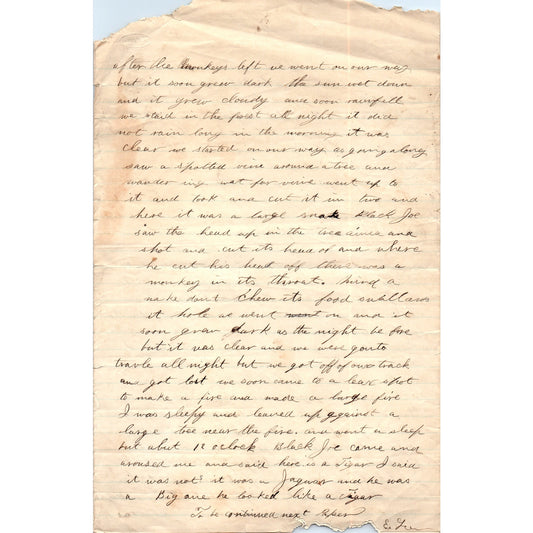 after the monkeys left we went on our way
but it soon grew dark the sun wet down
and it grew cloudy and soon rainfell
we staid in the forest all night it did
not rain long in the morning it was
clear we started on our way as going along
saw a spotted vine around a tree and
wander ing wat for vine went up to
it and took and cut it in two and
here it was a large snake Black Joe
saw the head up in the tree and
shot and cut its head of and where
he cut his head off there was a
monkey in its throat. mind a
snake dont Chew its food swallows
it hole we went on and it
soon grew dark as the night be fore
but it was clear and we were gonto
travle all night but we got off of our track
and got lost we soon came to a lear spot
to make a fire and made a large fire
I was sleepy and leaned up against a
large tree near the fire. and went a sleep
but abut 12 oclock Black Joe came and
aroused me and said here is a Tigar I said
it was not it was a Jaguar and he was
a Big one he looked like a Tigar
To be continued next